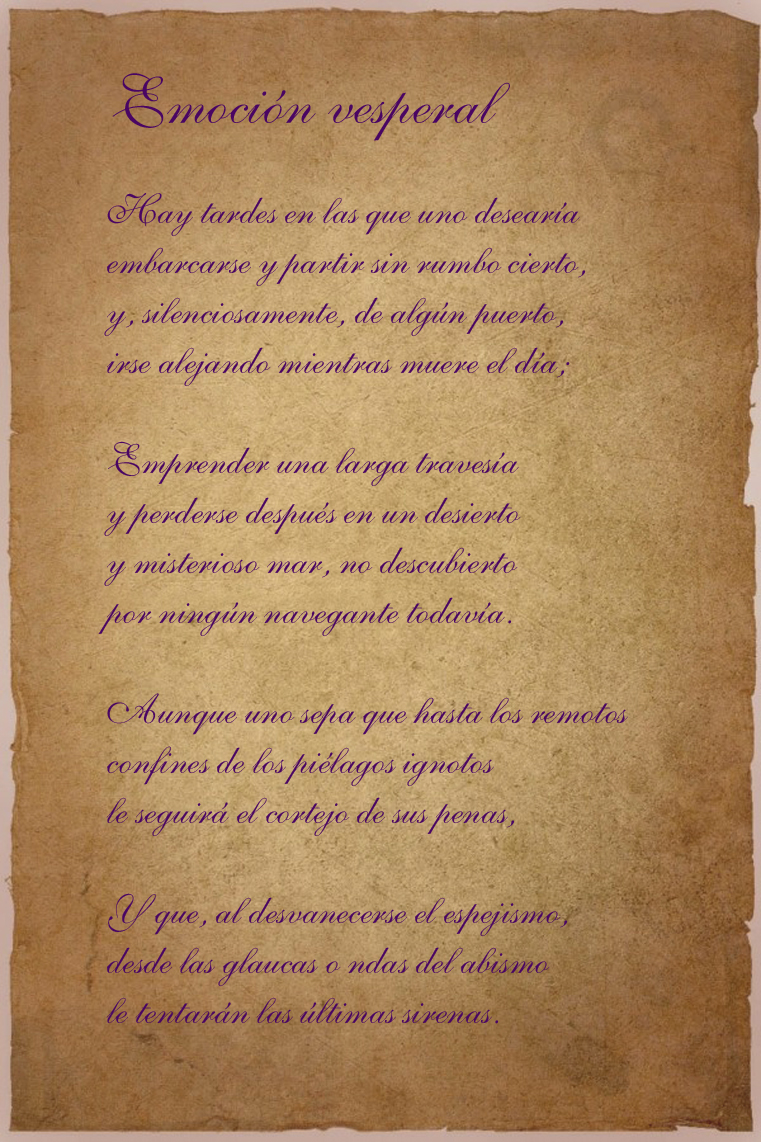 Emoción vesperal
Hay tardes en las que uno desearía
embarcarse y partir sin rumbo cierto,
y, silenciosamente, de algún puerto,
irse alejando mientras muere el día;
Emprender una larga travesía
y perderse después en un desierto
y misterioso mar, no descubierto
por ningún navegante todavía.
Aunque uno sepa que hasta los remotos
confines de los piélagos ignotos
le seguirá el cortejo de sus penas,
Y que, al desvanecerse el espejismo,
desde las glaucas o ndas del abismo
le tentarán las últimas sirenas.